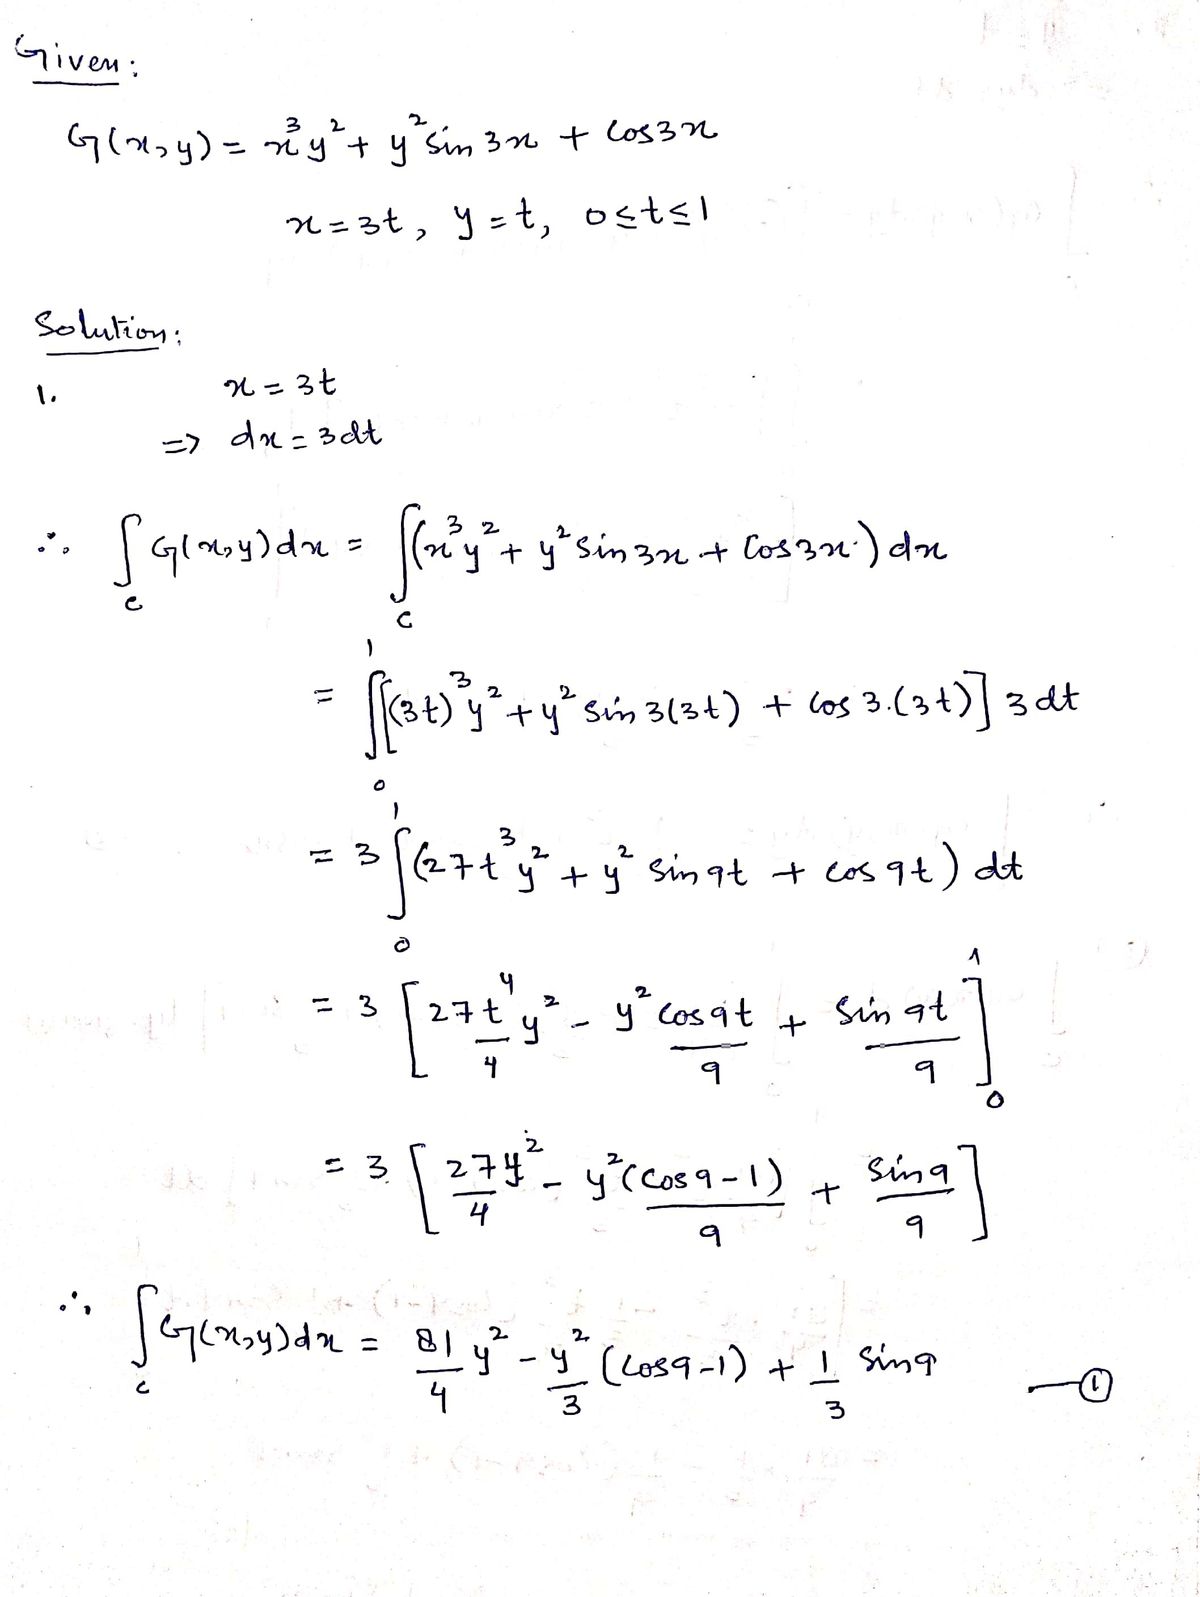 Given:
G(x,y) = x³y² + y² sin 3x + cos3x
x = 3t, y = t, 0≤t≤1
Solution:
1. x = 3t
=> dx = 3dt
∴ ∫_c G(x,y)dx = ∫_c (x³y² + y² sin 3x + cos 3x) dx
= ∫₀¹ [(3t)³y² + y² sin 3(3t) + cos 3.(3t)] 3dt
= 3 ∫₀¹ (27t³y² + y² sin 9t + cos 9t) dt
= 3 [27t⁴/4 y² - y² cos 9t/9 + sin 9t/9]₀¹
= 3 [27y²/4 - y²(cos 9-1)/9 + sin 9/9]
∴ ∫_c G(x,y)dx = 81/4 y² - y²/3 (cos9-1) + 1/3 sin9 —①